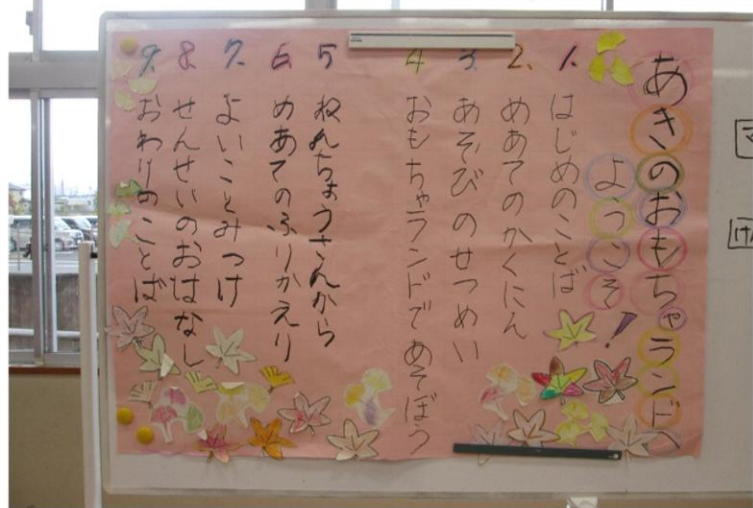 あきのおもちゃランドへ
ようこそ!
1. はじめのことば
2. めあてのかくにん
3. あそびのせつめい
4 おもちゃランドであそぼう
5 ねんちょうさんから
6. めあてのふりかえり
7. よいことみつけ
8. せんせいのおはなし
9. おわりのことば